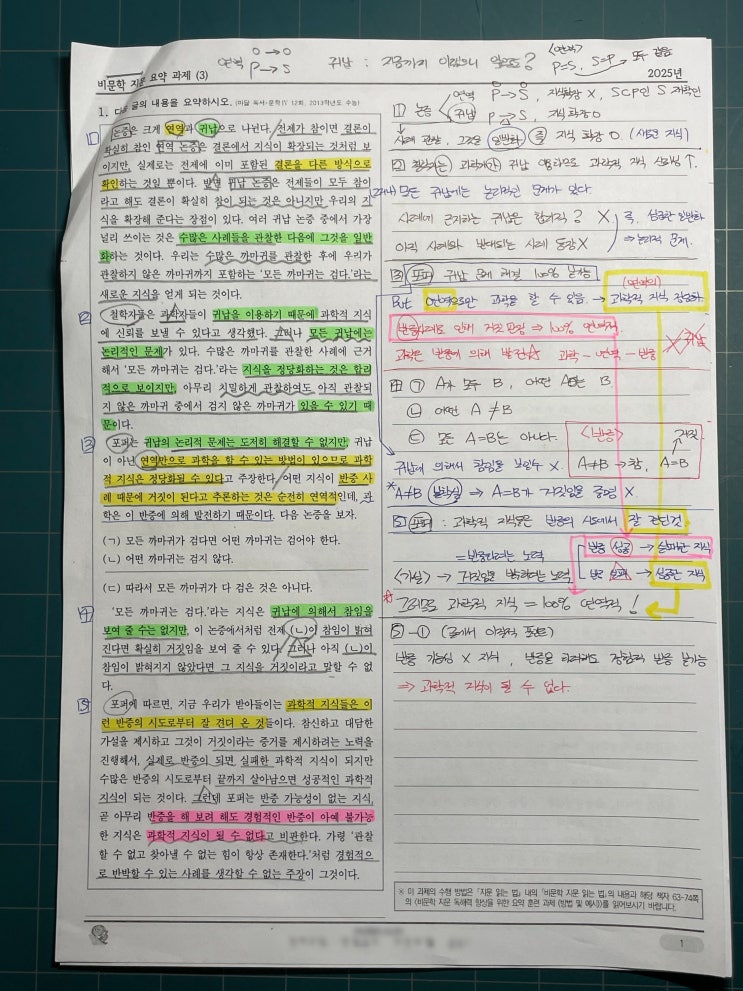 비문학 지문 요약 과제 (3)
2025년
연역 P → S
귀납 : 지금까지
P=S, S=P
1. 다음 글의 내용을 요약하시오. (마닳 독서·문학IV 12회, 2013학년도 수능)
논증은 크게 연역과 귀납으로 나뉜다. 전제가 참이면 결론이
확실히 참인 연역 논증은 결론에서 지식이 확장되는 것처럼 보
이지만, 실제로는 전제에 이미 포함된 결론을 다른 방식으로
확인하는 것일 뿐이다. 반면 귀납 논증은 전제들이 모두 참이
라고 해도 결론이 확실히 참이 되는 것은 아니지만 우리의 지
식을 확장해 준다는 장점이 있다. 여러 귀납 논증 중에서 가장
널리 쓰이는 것은 수많은 사례들을 관찰한 다음에 그것을 일반
화하는 것이다. 우리는 수많은 까마귀를 관찰한 후에 우리가
관찰하지 않은 까마귀까지 포함하는 '모든 까마귀는 검다.'라는
새로운 지식을 얻게 되는 것이다.
철학자들은 과학자들이 귀납을 이용하기 때문에 과학적 지식
에 신뢰를 보낼 수 있다고 생각했다. 그러나 모든 귀납에는
논리적인 문제가 있다. 수많은 까마귀를 관찰한 사례에 근거
해서 '모든 까마귀는 검다.'라는 지식을 정당화하는 것은 합리
적으로 보이지만, 아무리 치밀하게 관찰하여도 아직 관찰되
지 않은 까마귀 중에서 검지 않은 까마귀가 있을 수 있기 때
문이다.
포퍼는 귀납의 논리적 문제는 도저히 해결할 수 없지만, 귀납
이 아닌 연역만으로 과학을 할 수 있는 방법이 있으므로 과학
적 지식은 정당화될 수 있다고 주장한다. 어떤 지식이 반증 사
례 때문에 거짓이 된다고 추론하는 것은 순전히 연역적인데, 과
학은 이 반증에 의해 발전하기 때문이다. 다음 논증을 보자.
(ㄱ) 모든 까마귀가 검다면 어떤 까마귀는 검어야 한다.
(ㄴ) 어떤 까마귀는 검지 않다.
(ㄷ) 따라서 모든 까마귀가 다 검은 것은 아니다.
'모든 까마귀는 검다.'라는 지식은 귀납에 의해서 참임을
보여 줄 수는 없지만, 이 논증에서처럼 전제 (ㄴ)이 참임이 밝혀
진다면 확실히 거짓임을 보여 줄 수 있다. 그러나 아직 (ㄴ)이
참임이 밝혀지지 않았다면 그 지식을 거짓이라고 말할 수 없
다.
포퍼에 따르면, 지금 우리가 받아들이는 과학적 지식들은 이
런 반증의 시도로부터 잘 견뎌 온 것들이다. 참신하고 대담한
가설을 제시하고 그것이 거짓이라는 증거를 제시하려는 노력을
진행해서, 실제로 반증이 되면 실패한 과학적 지식이 되지만
수많은 반증의 시도로부터 끝까지 살아남으면 성공적인 과학적
지식이 되는 것이다. 그런데 포퍼는 반증 가능성이 없는 지식,
곧 아무리 반증을 해 보려 해도 경험적인 반증이 아예 불가능
한 지식은 과학적 지식이 될 수 없다고 비판한다. 가령 '관찰
할 수 없고 찾아낼 수 없는 힘이 항상 존재한다.'처럼 경험적으
로 반박할 수 있는 사례를 생각할 수 없는 주장이 그것이다.
1 논증 연역 P → S, 지식확장 X,
귀납 P → S, 지식 확장 O
사례 관찰, 그것을 일반화 즉 지식 확장 O
2 철학자는 과학자가 귀납 지식 신뢰성 ↑.
모든 귀납에는 논리적인 문제가 있다.
사례에 근거하는 귀납은 합리적? X
아직 사례와 반대되는 사례 등장X ⇒ 논리적 문제.
3 포퍼 귀납 문제 해결 100% 불가능
But 연역으로만 과학을 할 수 있음. → 과학적 지식 정당화
⇒ 100% 연역적
과학은 반증에 의해 발전 과학 - 연역 - 반증
귀납
4 ㉠ A가 모두 B, 어떤 A는 B
㉡ 어떤 A ≠ B
㉢ 모든 A=B는 아니다.
<반증> 거짓
A≠B → 참, A=B
귀납에 의해서 참임을 보일수 X
* A≠B 불확실 ⇒ A=B가 거짓임을 증명 X
5 포퍼 : 과학적 지식은 반증의 시도에서 잘 견딘것
반증 성공 → 실패한 지식
= 반증하려는 노력
<가설> → 거짓임을 노력
반증 실패 → 성공한 지식
그러므로 과학적 지식 = 100% 연역적!
5 - ①
반증 가능성 X 지식, 반증을 하려해도 경험적 반증 불가능
⇒ 과학적 지식이 될 수 없다.
※ 이 과제의 수행 방법은 「지문 읽는 법」 내의 「비문학 지문 읽는 법」의 내용과 해당 책자 63-74쪽
의 (비문학 지문 독해력 향상을 위한 요약 훈련 과제 (방법 및 예시))를 읽어보시기 바랍니다.
1